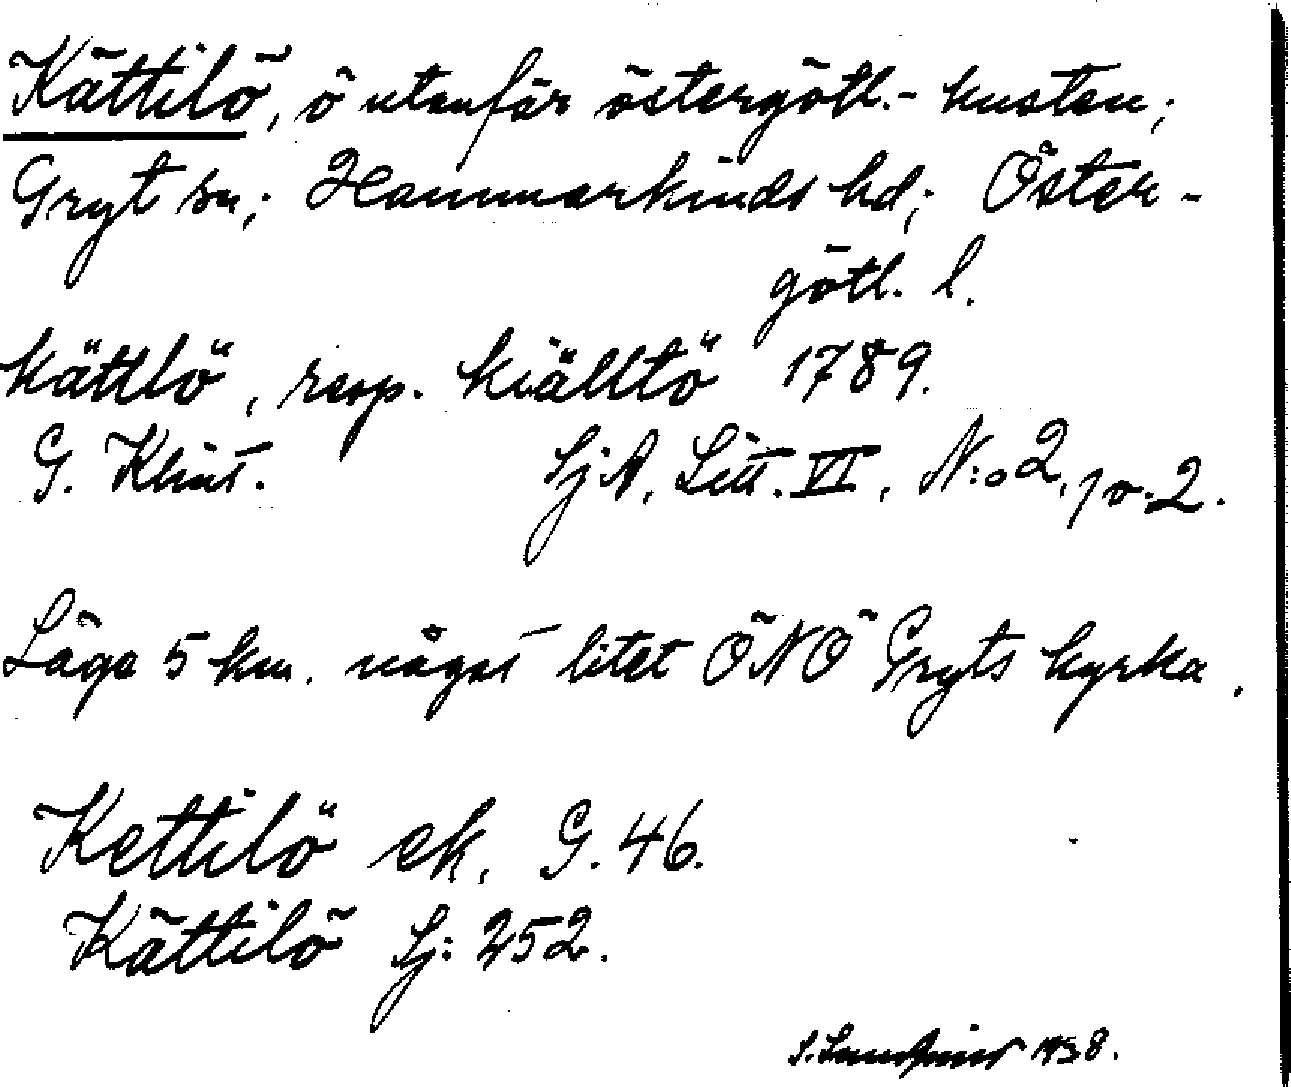 Kättilö, ö utanför östergötl.- kusten;
Gryt sn; Hammarkinds hd; Öster-
götl. l.
Kättlö, resp. Kiälltö 1789.
G. Klint. SjA, Litt. VI, N:o 2, pr. 2.
Läge 5 km. något litet ÖNÖ Gryts kyrka.
Kettilö ek. G. 46.
Kättilö Sj: 252.
1938.